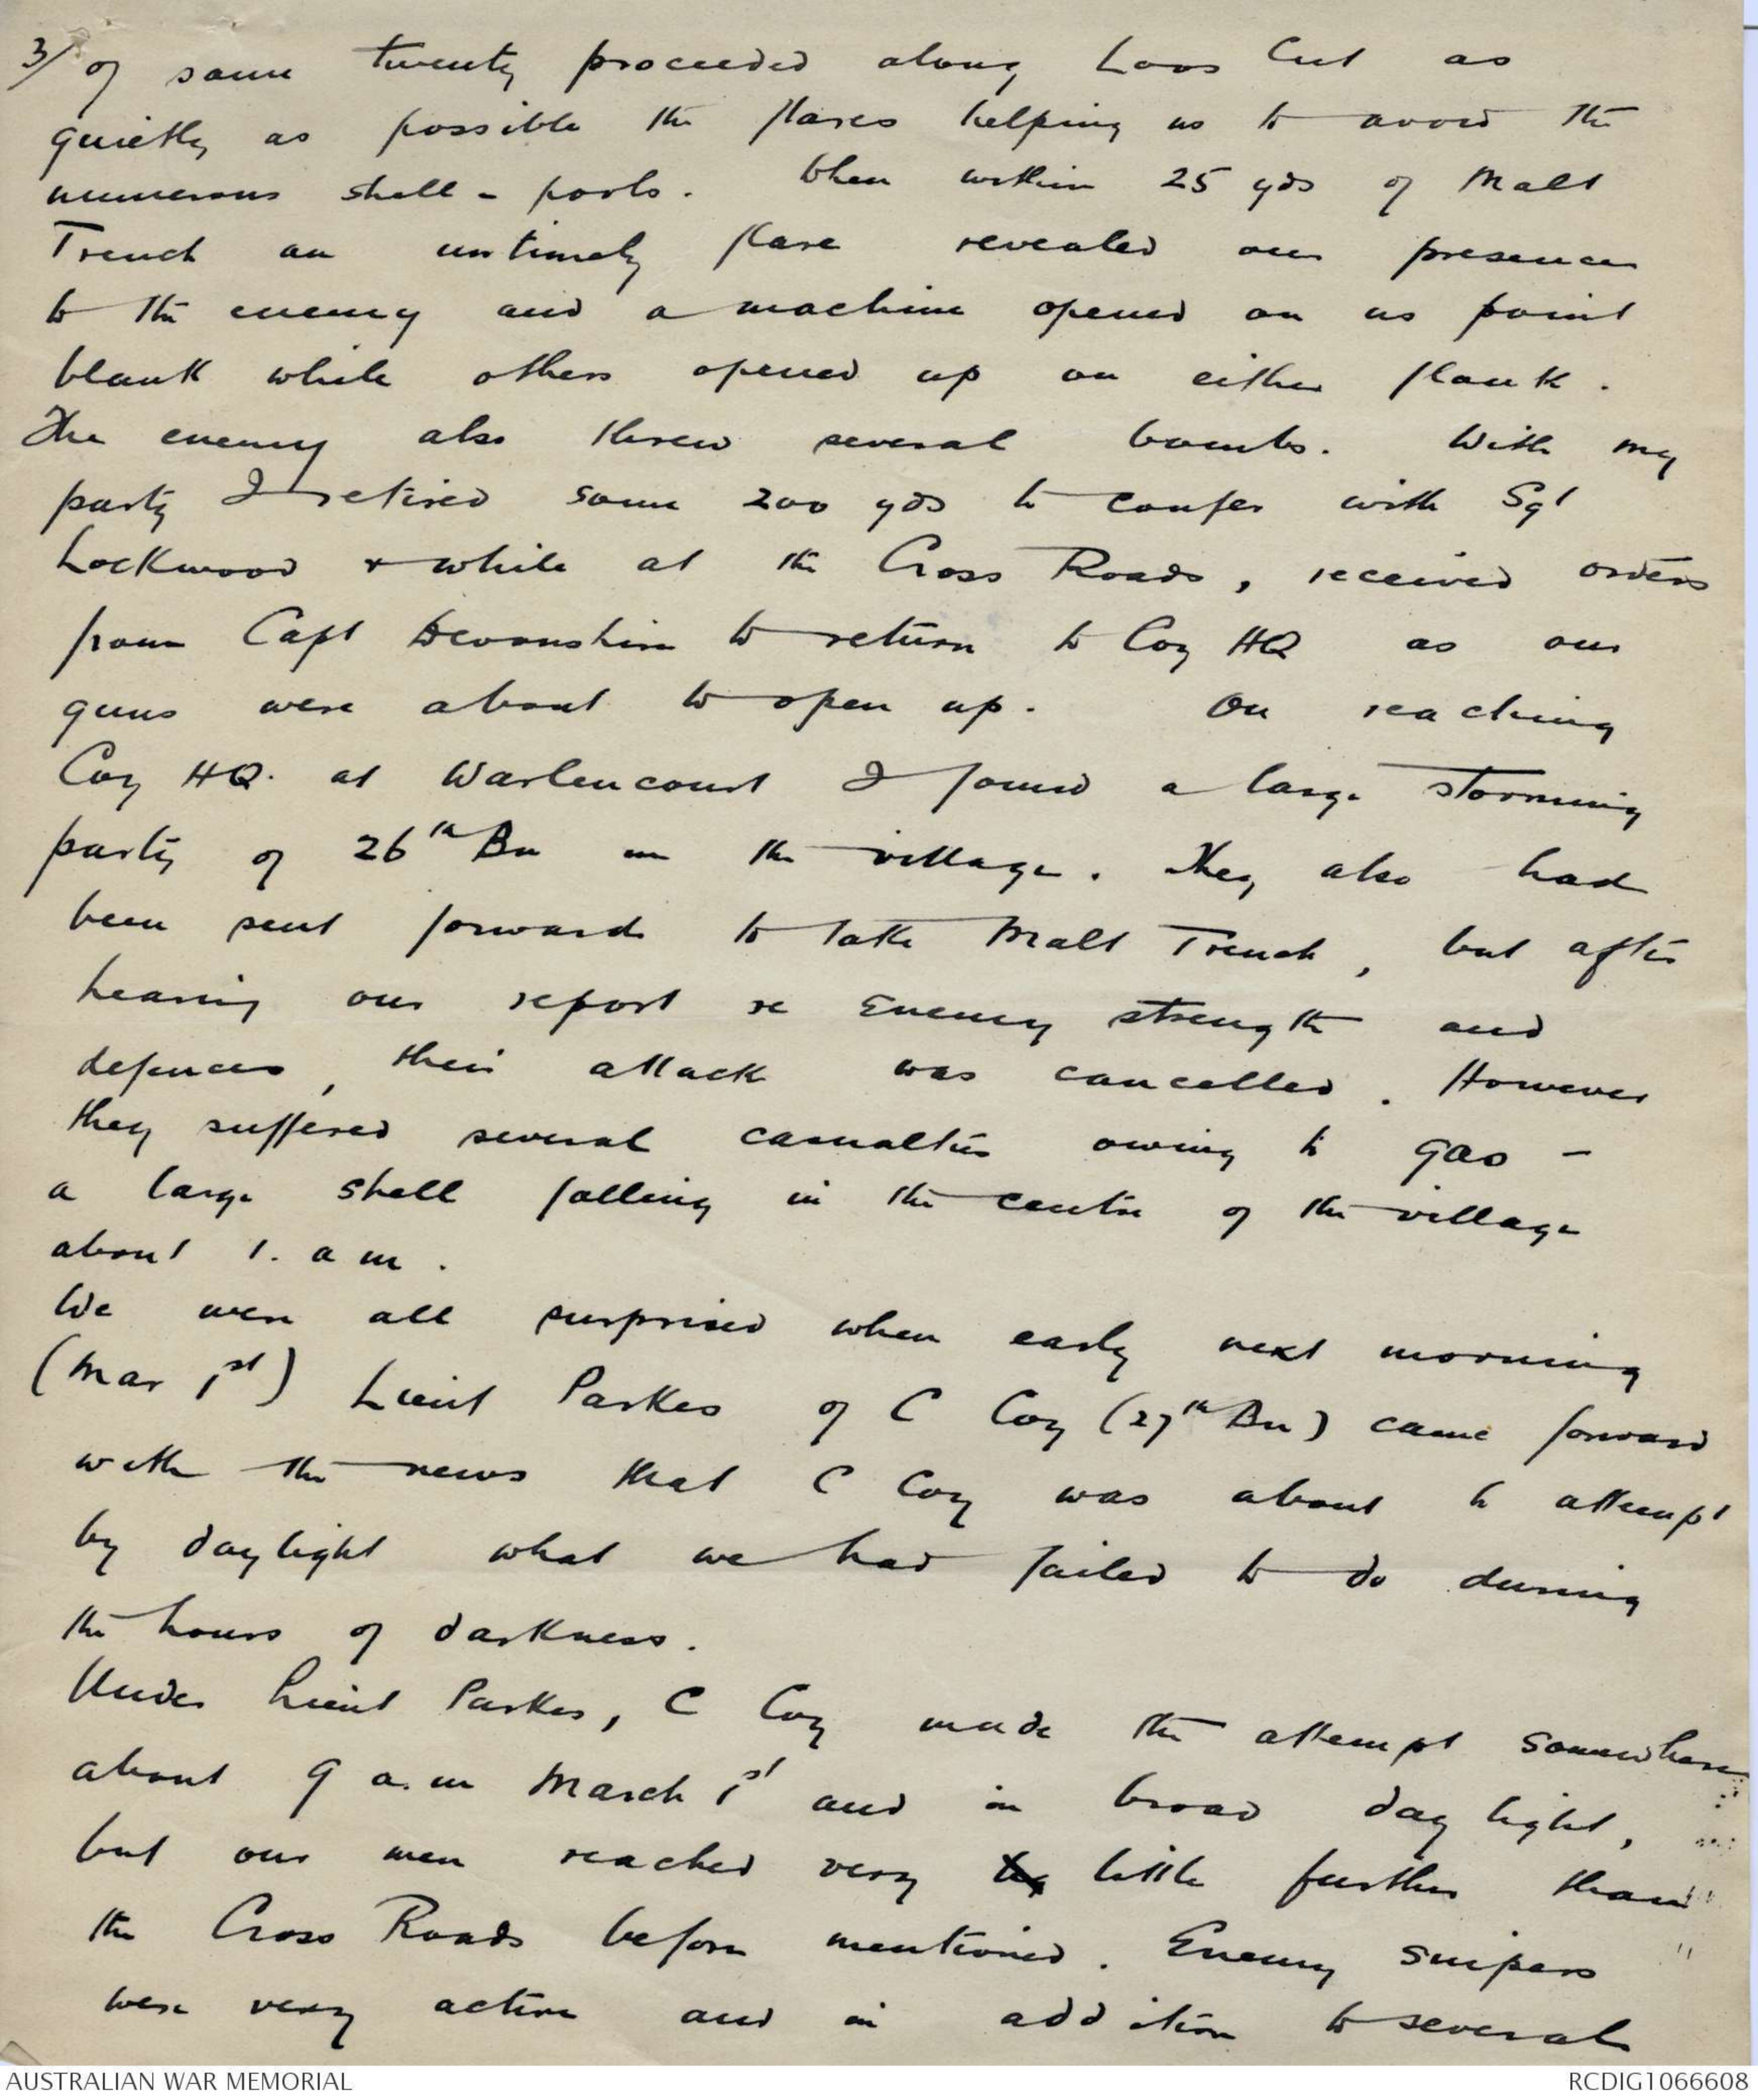 3/ of some twenty proceeded along Loos Cut as
quietly as possible the flares helping us to avoid the
numerous shell - pools. When within 25 yds of Malt
Trench an untimely flare revealed our presence
to the enemy and a machine opened on us point
blank while others opened up on either flank.
The enemy also threw several bombs. With my
party I retired some 200 yds to confer with Sgt
Lockwood & while at the Cross Roads, received orders
from Capt Devonshire to return to Coy HQ as our
guns were about to open up. On reaching
Coy HQ. at Warlencourt I found a large storming
party of 26th Bn in the village. They also had
been sent forward to take Malt Trench, but after
hearing our report re Enemy strength and
defences, their attack was cancelled. However
they suffered several casualties owing to gas -
a large shell falling in the centre of the village
about 1. a m.
We were all surprised when early next morning
(Mar 1st) Lieut Parkes of C Coy (27th Bn) came forward
with the news that C Coy was about to attempt
by daylight what we had failed to do during
the hours of darkness.
Under Lieut Parkes, C Coy made the attempt somewhere
about 9 a.m March 1st and in broad day light,
but our men reached very little further than
the Cross Roads before mentioned. Enemy snipers
were very active and in addition to several
AUSTRALIAN WAR MEMORIAL
RCDIG1066608